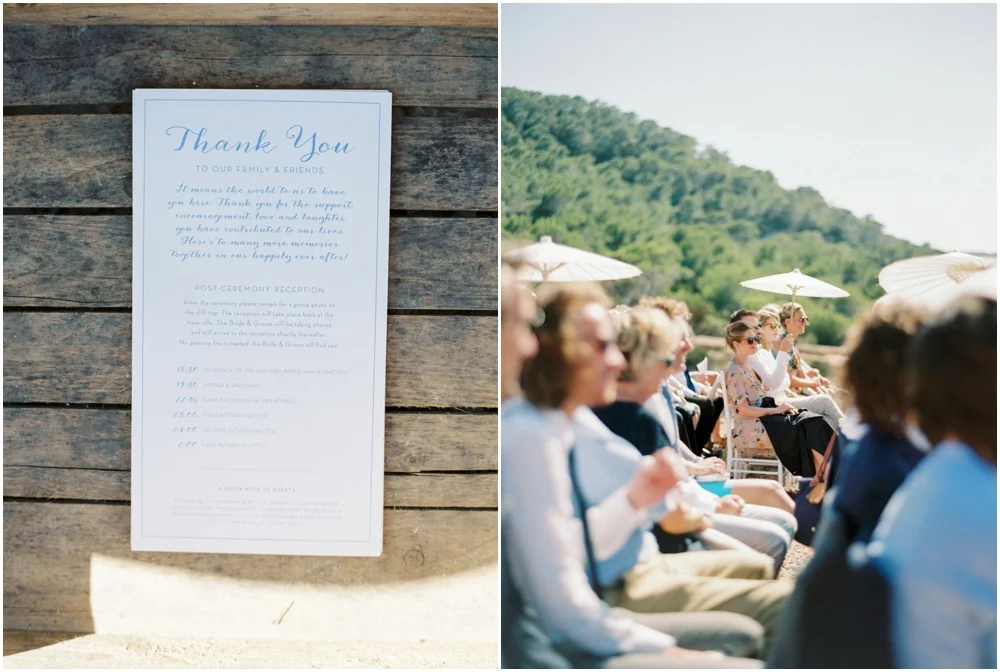 Thank You
TO OUR FAMILY & FRIENDS,
It means the world to us to have
you here. Thank you for the support,
encouragement, love and laughter
you have contributed to our lives.
Here's to many more memories
together in our happily ever after!
POST-CEREMONY RECEPTION
After the ceremony please remain for a group photo on
the cliff top. The reception will take place back at the
main villa. The Bride & Groom will be taking photos
and will arrive to the reception shortly thereafter.
No greeting line is needed, the Bride & Groom will find you!
18:30 ENTRANCE TO MR AND MRS
19:30 DINNER & SPEECHES
CAKE CUTTING & CELEBRATIONS
23:00 FIRST RETURN SHUTTLE
24:00 SECOND RETURN SHUTTLE
2:00 LAST RETURN SHUTTLE
A QUICK NOTE TO GUESTS